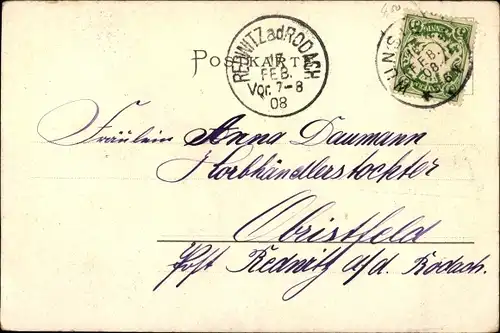 POSTKARTE
REDWITZ a.d. RODACH
15
FEB.
Vor. 7-8
08
Fräulein Anna Daumann
Korbhändlerstochter
Obristfeld
Post Redwitz a/d. Rodach.